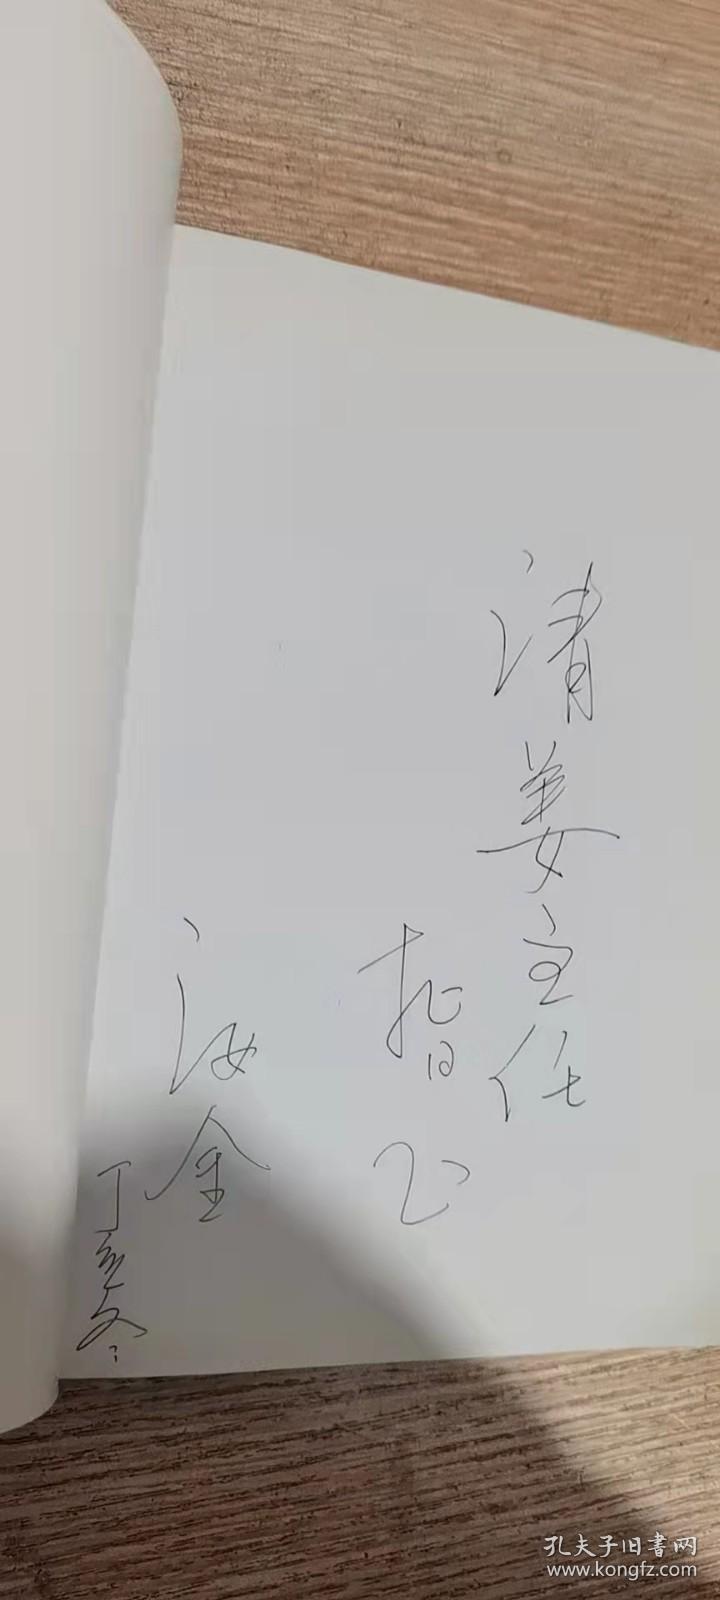 请姜主任
指正
汝金
丁亥冬
孔夫子旧书网
www.kongfz.com